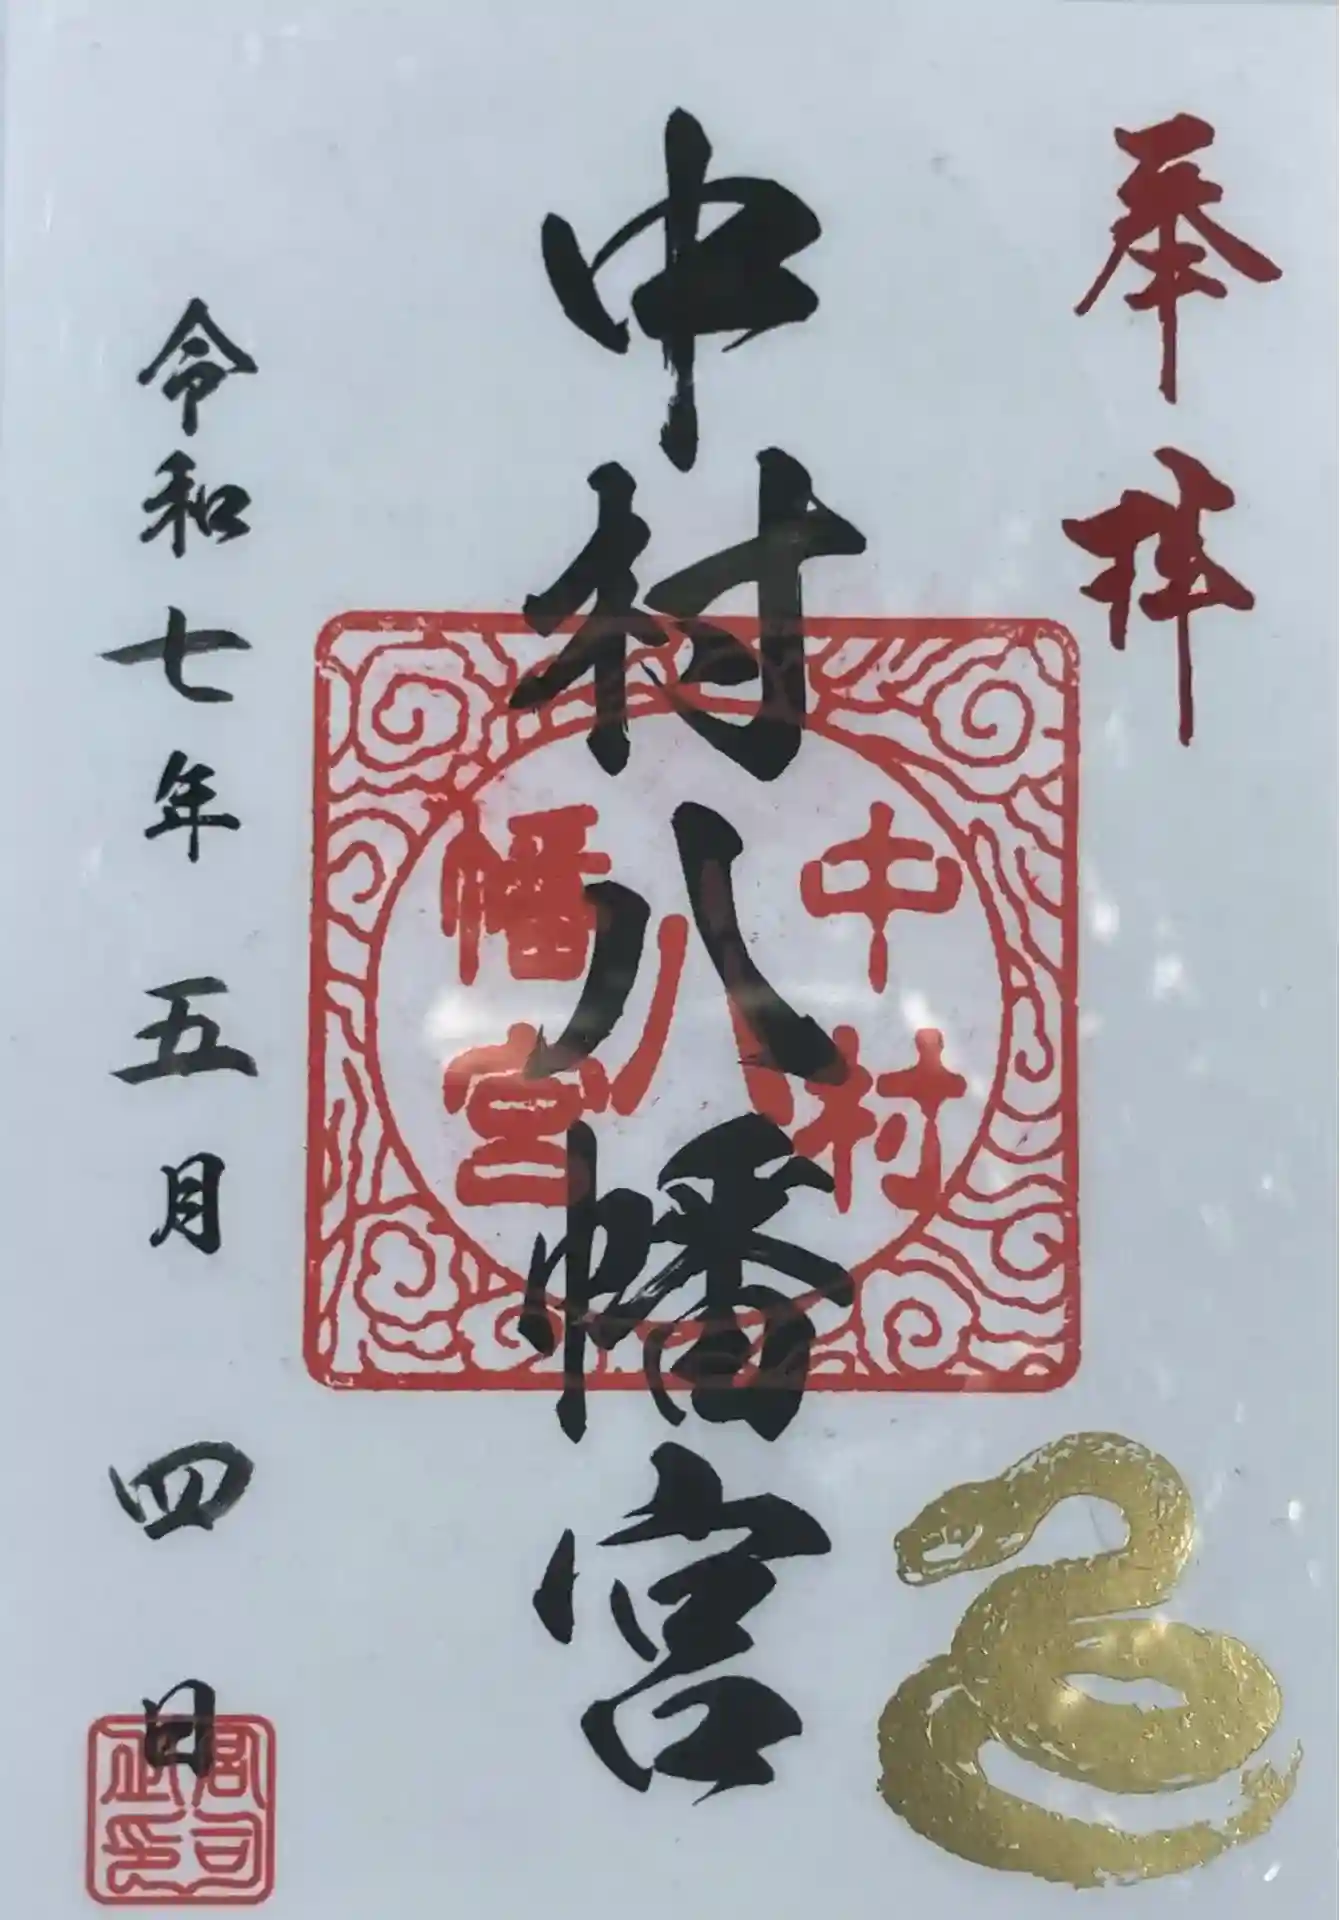 奉拝
中村八幡宮
中村
八
幡宮
令和七年 五月 四日
宮司
之印